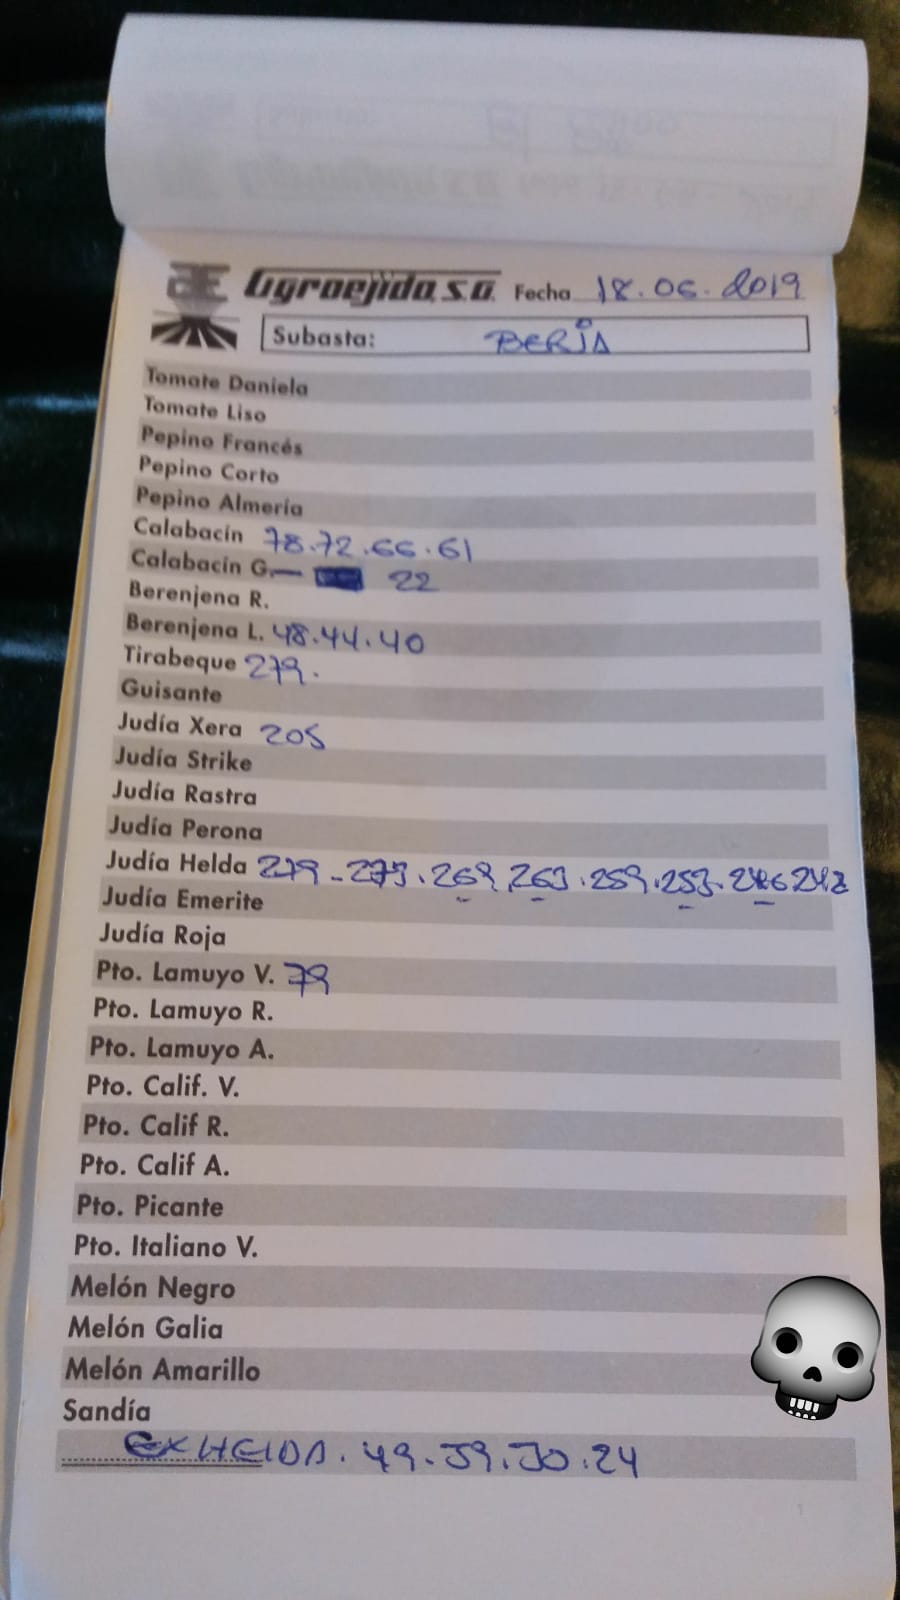 Agroejido, S.A. Fecha 18.06.2019
Subasta: BERJA
Tomate Daniela
Tomate Liso
Pepino Francés
Pepino Corto
Pepino Almería
Calabacín 78.72.66.61
Calabacín G. 22
Berenjena R.
Berenjena L. 48.44.40
Tirabeque 279.
Guisante
Judía Xera 205
Judía Strike
Judía Rastra
Judía Perona
Judía Helda 279-275.269.263.259.253.246 242
Judía Emerite
Judía Roja
Pto. Lamuyo V. 79
Pto. Lamuyo R.
Pto. Lamuyo A.
Pto. Calif. V.
Pto. Calif R.
Pto. Calif A.
Pto. Picante
Pto. Italiano V.
Melón Negro
Melón Galia
Melón Amarillo
Sandía
EXHELDA. 49.39.30.24